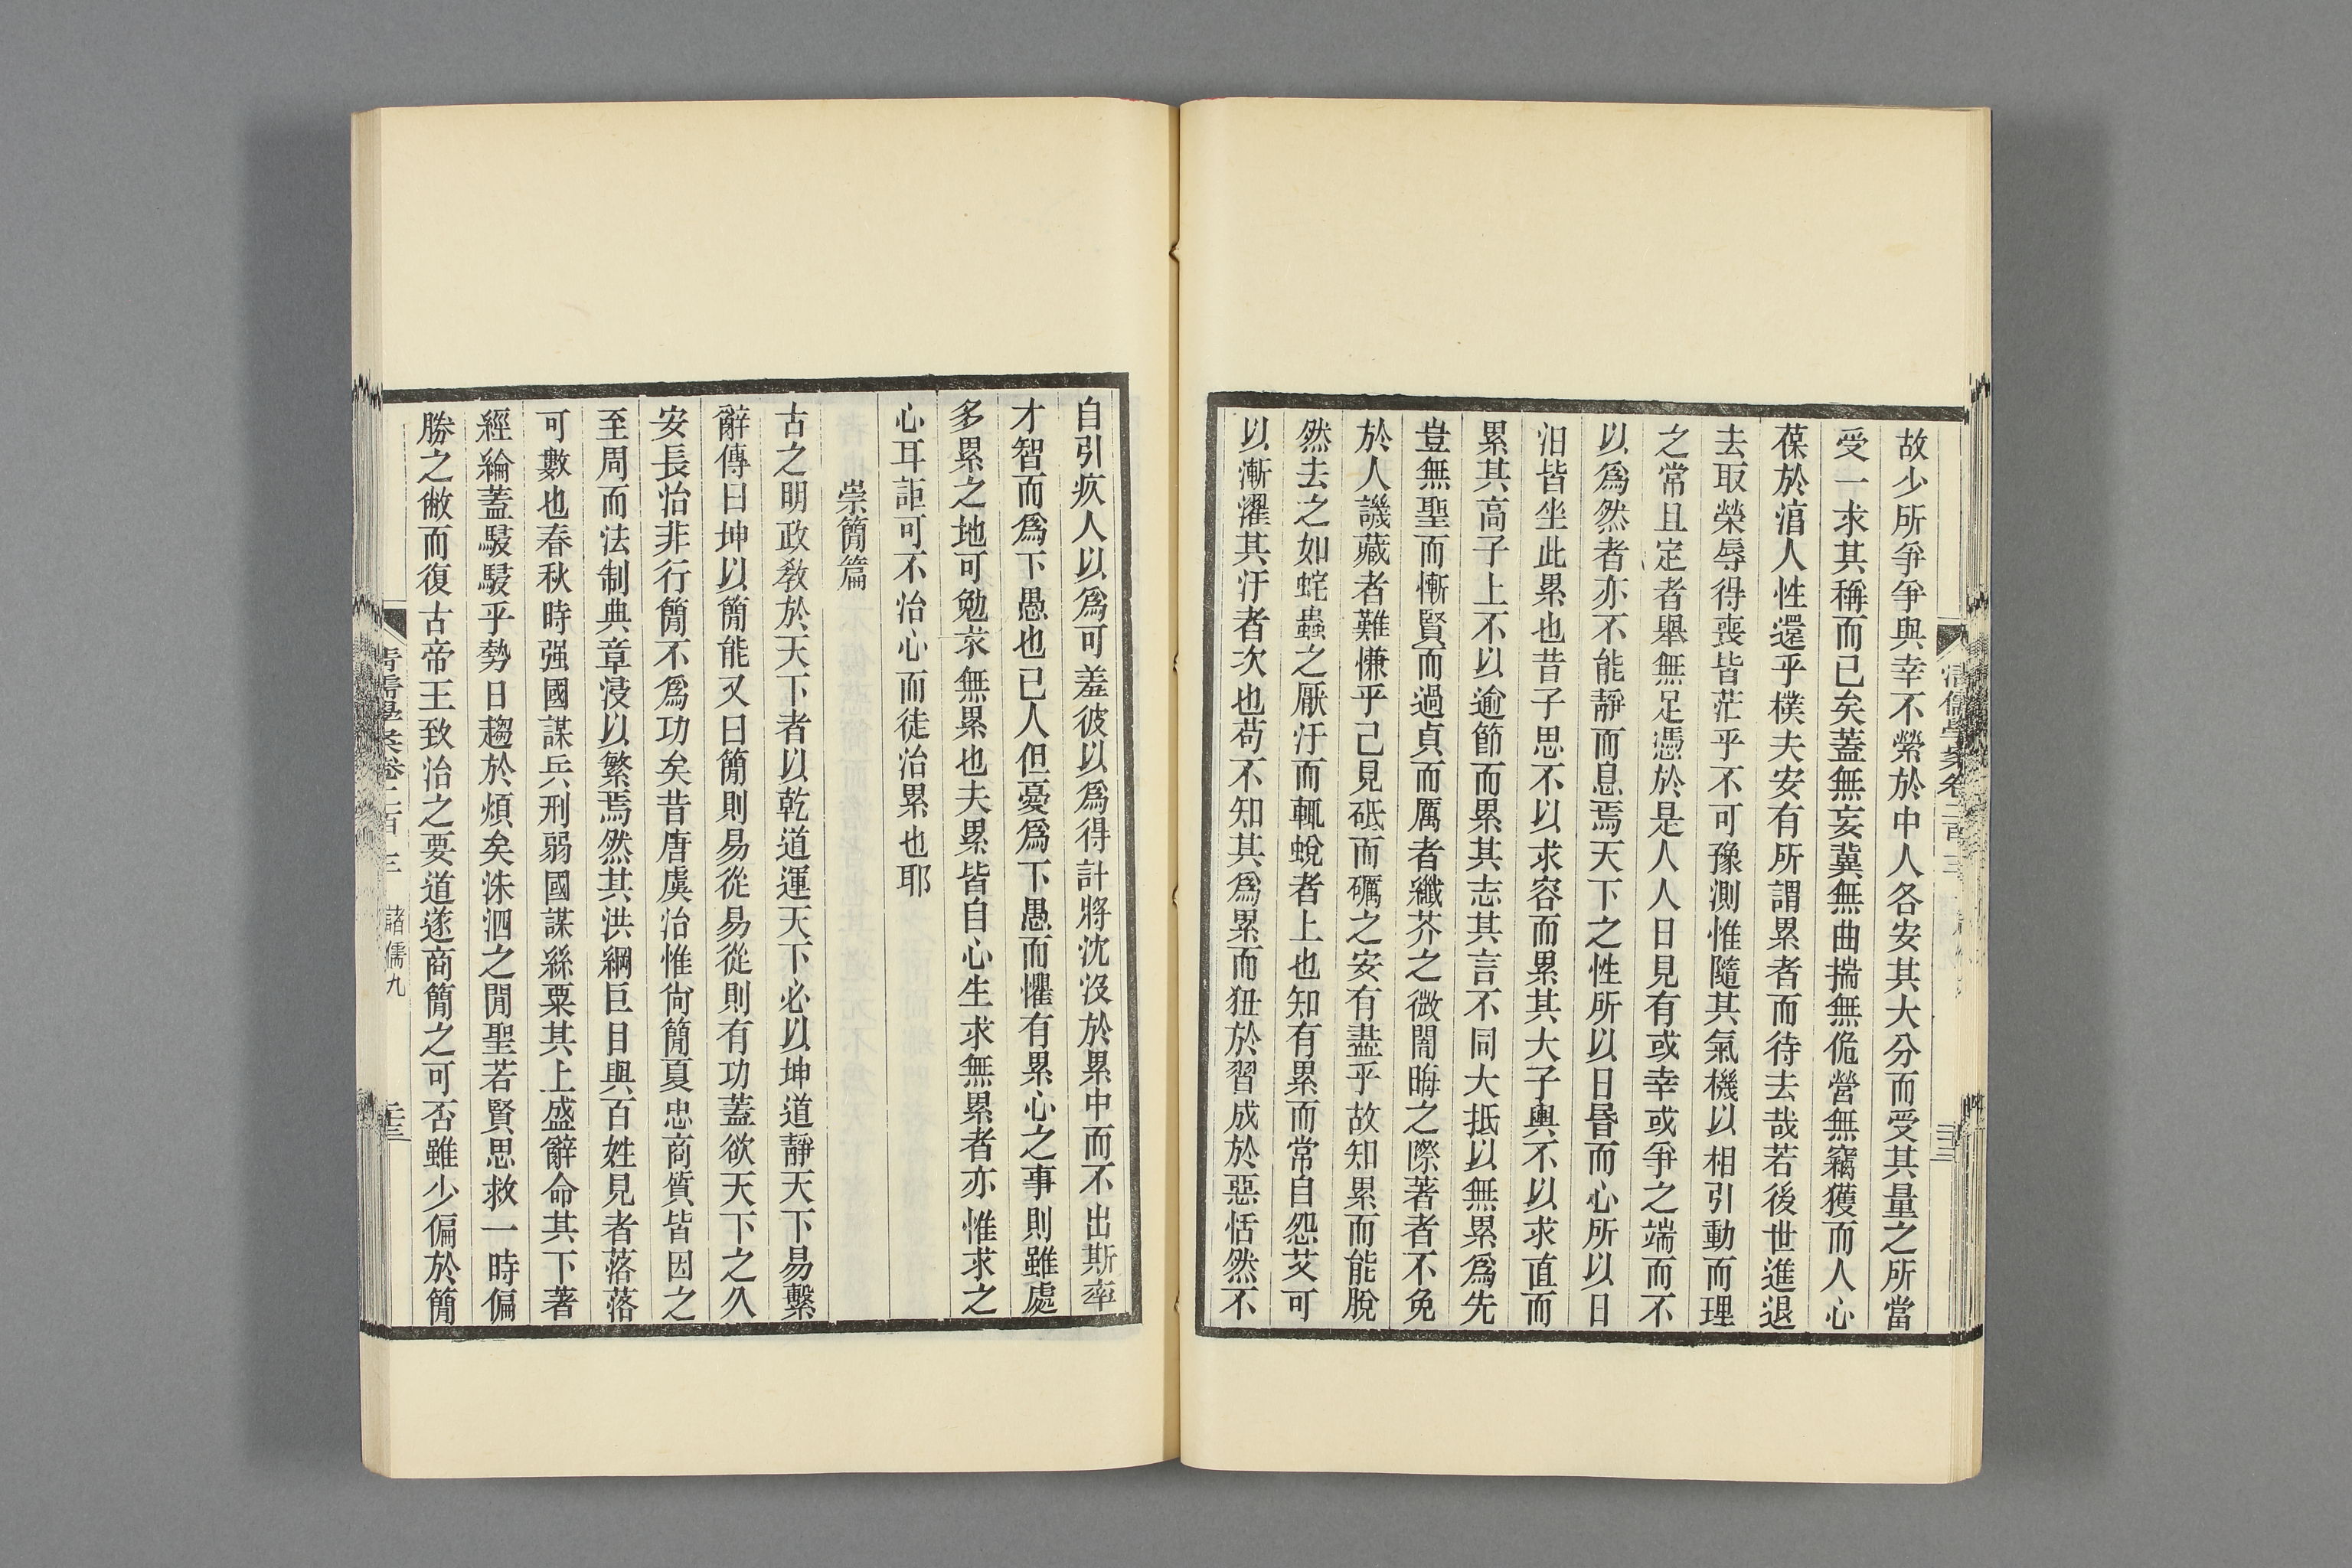 故少所爭爭與幸不縈於中人各安其大分而受其量之所當
受一求其稱而已矣蓋無妄冀無曲揣無佹營無竊獲而人心
葆於㴆人性還乎樸夫安有所謂累者而待去哉若後世進退
去取榮辱得喪皆茫乎不可豫測惟隨其氣機以相引動而理
之常且定者舉無足憑於是人人日見有或幸或爭之端而不
以爲然者亦不能靜而息焉天下之性所以日昬而心所以日
汨皆坐此累也昔子思不以求容而累其大子輿不以求直而
累其高子上不以逾節而累其志其言不同大抵以無累爲先
豈無聖而慚賢而過貞而厲者纖芥之微闇晦之際著者不免
於人譏藏者難慊乎己見砥而礪之安有盡乎故知累而能脫
然去之如蛇蟲之厭汙而輒蛻者上也知有累而常自怨艾可
以漸濯其汙者次也苟不知其爲累而狃於習成於惡恬然不
清儒學案卷二百三
三三
自引疚人以爲可羞彼以爲得計將沈沒於累中而不出斯率
才智而爲下愚也已人但憂爲下愚而懼有累心之事則雖處
多累之地可勉求無累也夫累皆自心生求無累者亦惟求之
心耳詎可不治心而徒治累也耶
崇簡篇
古之明政敎於天下者以乾道運天下必以坤道靜天下易繫
辭傳曰坤以簡能又曰簡則易從易從則有功蓋欲天下之久
安長治非行簡不爲功矣昔唐虞治惟尙簡夏忠商質皆因之
至周而法制典章浸以繁焉然其洪綱巨目與百姓見者落落
可數也春秋時强國謀兵刑弱國謀絲粟其上盛辭命其下著
經綸蓋駸駸乎勢日趨於煩矣洙泗之閒聖若賢思救一時偏
勝之敝而復古帝王致治之要道遂商簡之可否雖少偏於簡
清儒學案卷二百三 諸儒九